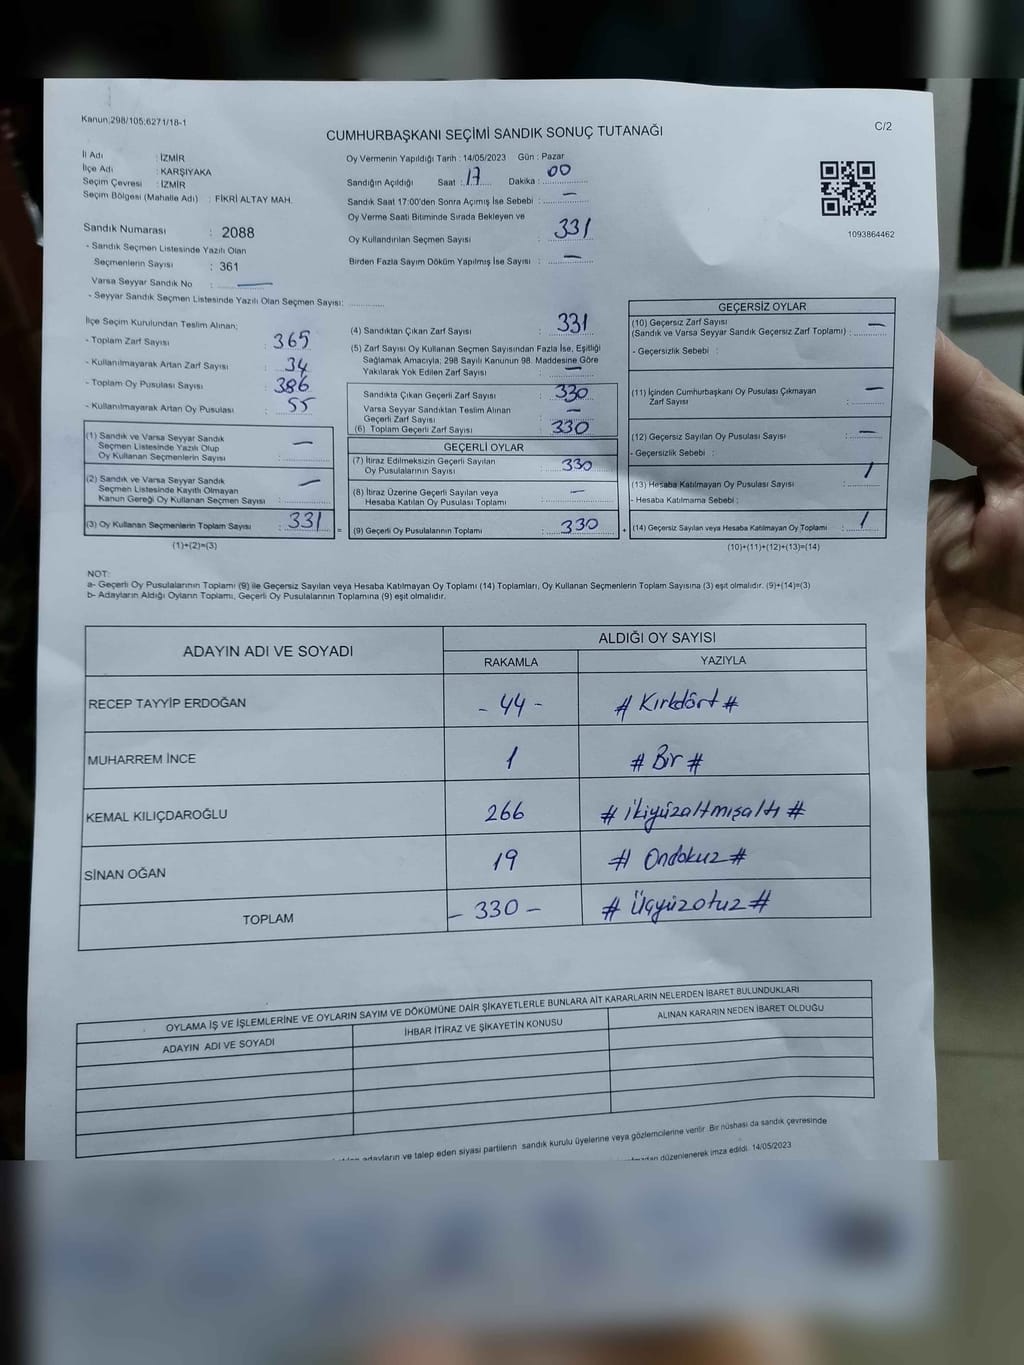 Kanun:298/105;6271/18-1
C/2
CUMHURBAŞKANI SEÇİMİ SANDIK SONUÇ TUTANAĞI
İl Adı : İZMİR
İlçe Adı : KARŞIYAKA
Seçim Çevresi : İZMİR
Seçim Bölgesi (Mahalle Adı) : FİKRİ ALTAY MAH.
Sandık Numarası : 2088
- Sandık Seçmen Listesinde Yazılı Olan
Seçmenlerin Sayısı : 361
Varsa Seyyar Sandık No : —
- Seyyar Sandık Seçmen Listesinde Yazılı Olan Seçmen Sayısı: ............
Oy Vermenin Yapıldığı Tarih : 14/05/2023 Gün : Pazar
Sandığın Açıldığı Saat : 17 Dakika : 00
Sandık Saat 17:00'den Sonra Açımış İse Sebebi : —
Oy Verme Saati Bitiminde Sırada Bekleyen ve
Oy Kullandırılan Seçmen Sayısı : 331
Birden Fazla Sayım Döküm Yapılmış İse Sayısı : —
1093864462
İlçe Seçim Kurulundan Teslim Alınan;
- Toplam Zarf Sayısı : 365
- Kullanılmayarak Artan Zarf Sayısı : 34
- Toplam Oy Pusulası Sayısı : 386
- Kullanılmayarak Artan Oy Pusulası : 55
(1) Sandık ve Varsa Seyyar Sandık
Seçmen Listesinde Yazılı Olup
Oy Kullanan Seçmenlerin Sayısı : —
(2) Sandık ve Varsa Seyyar Sandık
Seçmen Listesinde Kayıtlı Olmayan
Kanun Gereği Oy Kullanan Seçmen Sayısı : —
(3) Oy Kullanan Seçmenlerin Toplam Sayısı : 331 =
(1)+(2)=(3)
(4) Sandıktan Çıkan Zarf Sayısı : 331
(5) Zarf Sayısı Oy Kullanan Seçmen Sayısından Fazla İse, Eşitliği
Sağlamak Amacıyla; 298 Sayılı Kanunun 98. Maddesine Göre
Yakılarak Yok Edilen Zarf Sayısı : —
Sandıkta Çıkan Geçerli Zarf Sayısı : 330
Varsa Seyyar Sandıktan Teslim Alınan
Geçerli Zarf Sayısı : —
(6) Toplam Geçerli Zarf Sayısı : 330
GEÇERLİ OYLAR
(7) İtiraz Edilmeksizin Geçerli Sayılan
Oy Pusulalarının Sayısı : 330
(8) İtiraz Üzerine Geçerli Sayılan veya
Hesaba Katılan Oy Pusulası Toplamı : —
(9) Geçerli Oy Pusulalarının Toplamı : 330 +
GEÇERSİZ OYLAR
(10) Geçersiz Zarf Sayısı
(Sandık ve Varsa Seyyar Sandık Geçersiz Zarf Toplamı) : —
- Geçersizlik Sebebi :
(11) İçinden Cumhurbaşkanı Oy Pusulası Çıkmayan
Zarf Sayısı : —
(12) Geçersiz Sayılan Oy Pusulası Sayısı : —
- Geçersizlik Sebebi :
(13) Hesaba Katılmayan Oy Pusulası Sayısı : 1
- Hesaba Katılmama Sebebi :
(14) Geçersiz Sayılan veya Hesaba Katılmayan Oy Toplamı : 1
(10)+(11)+(12)+(13)=(14)
NOT:
a- Geçerli Oy Pusulalarının Toplamı (9) ile Geçersiz Sayılan veya Hesaba Katılmayan Oy Toplamı (14) Toplamları, Oy Kullanan Seçmenlerin Toplam Sayısına (3) eşit olmalıdır. (9)+(14)=(3)
b- Adayların Aldığı Oyların Toplamı, Geçerli Oy Pusulalarının Toplamına (9) eşit olmalıdır.
ADAYIN ADI VE SOYADI ALDIĞI OY SAYISI
RAKAMLA YAZIYLA
RECEP TAYYİP ERDOĞAN - 44 - # Kırkdört #
MUHARREM İNCE 1 # Bir #
KEMAL KILIÇDAROĞLU 266 # ikiyüzaltmışaltı #
SİNAN OĞAN 19 # Ondokuz #
TOPLAM - 330 - # Üçyüzotuz #
OYLAMA İŞ VE İŞLEMLERİNE VE OYLARIN SAYIM VE DÖKÜMÜNE DAİR ŞİKAYETLERLE BUNLARA AİT KARARLARIN NELERDEN İBARET BULUNDUKLARI
ADAYIN ADI VE SOYADI İHBAR İTİRAZ VE ŞİKAYETİN KONUSU ALINAN KARARIN NEDEN İBARET OLDUĞU
adayların ve talep eden siyasi partilerin sandık kurulu üyelerine veya gözlemcilerine verilir. Bir nüshası da sandık çevresinde
düzenlenerek imza edildi. 14/05/2023